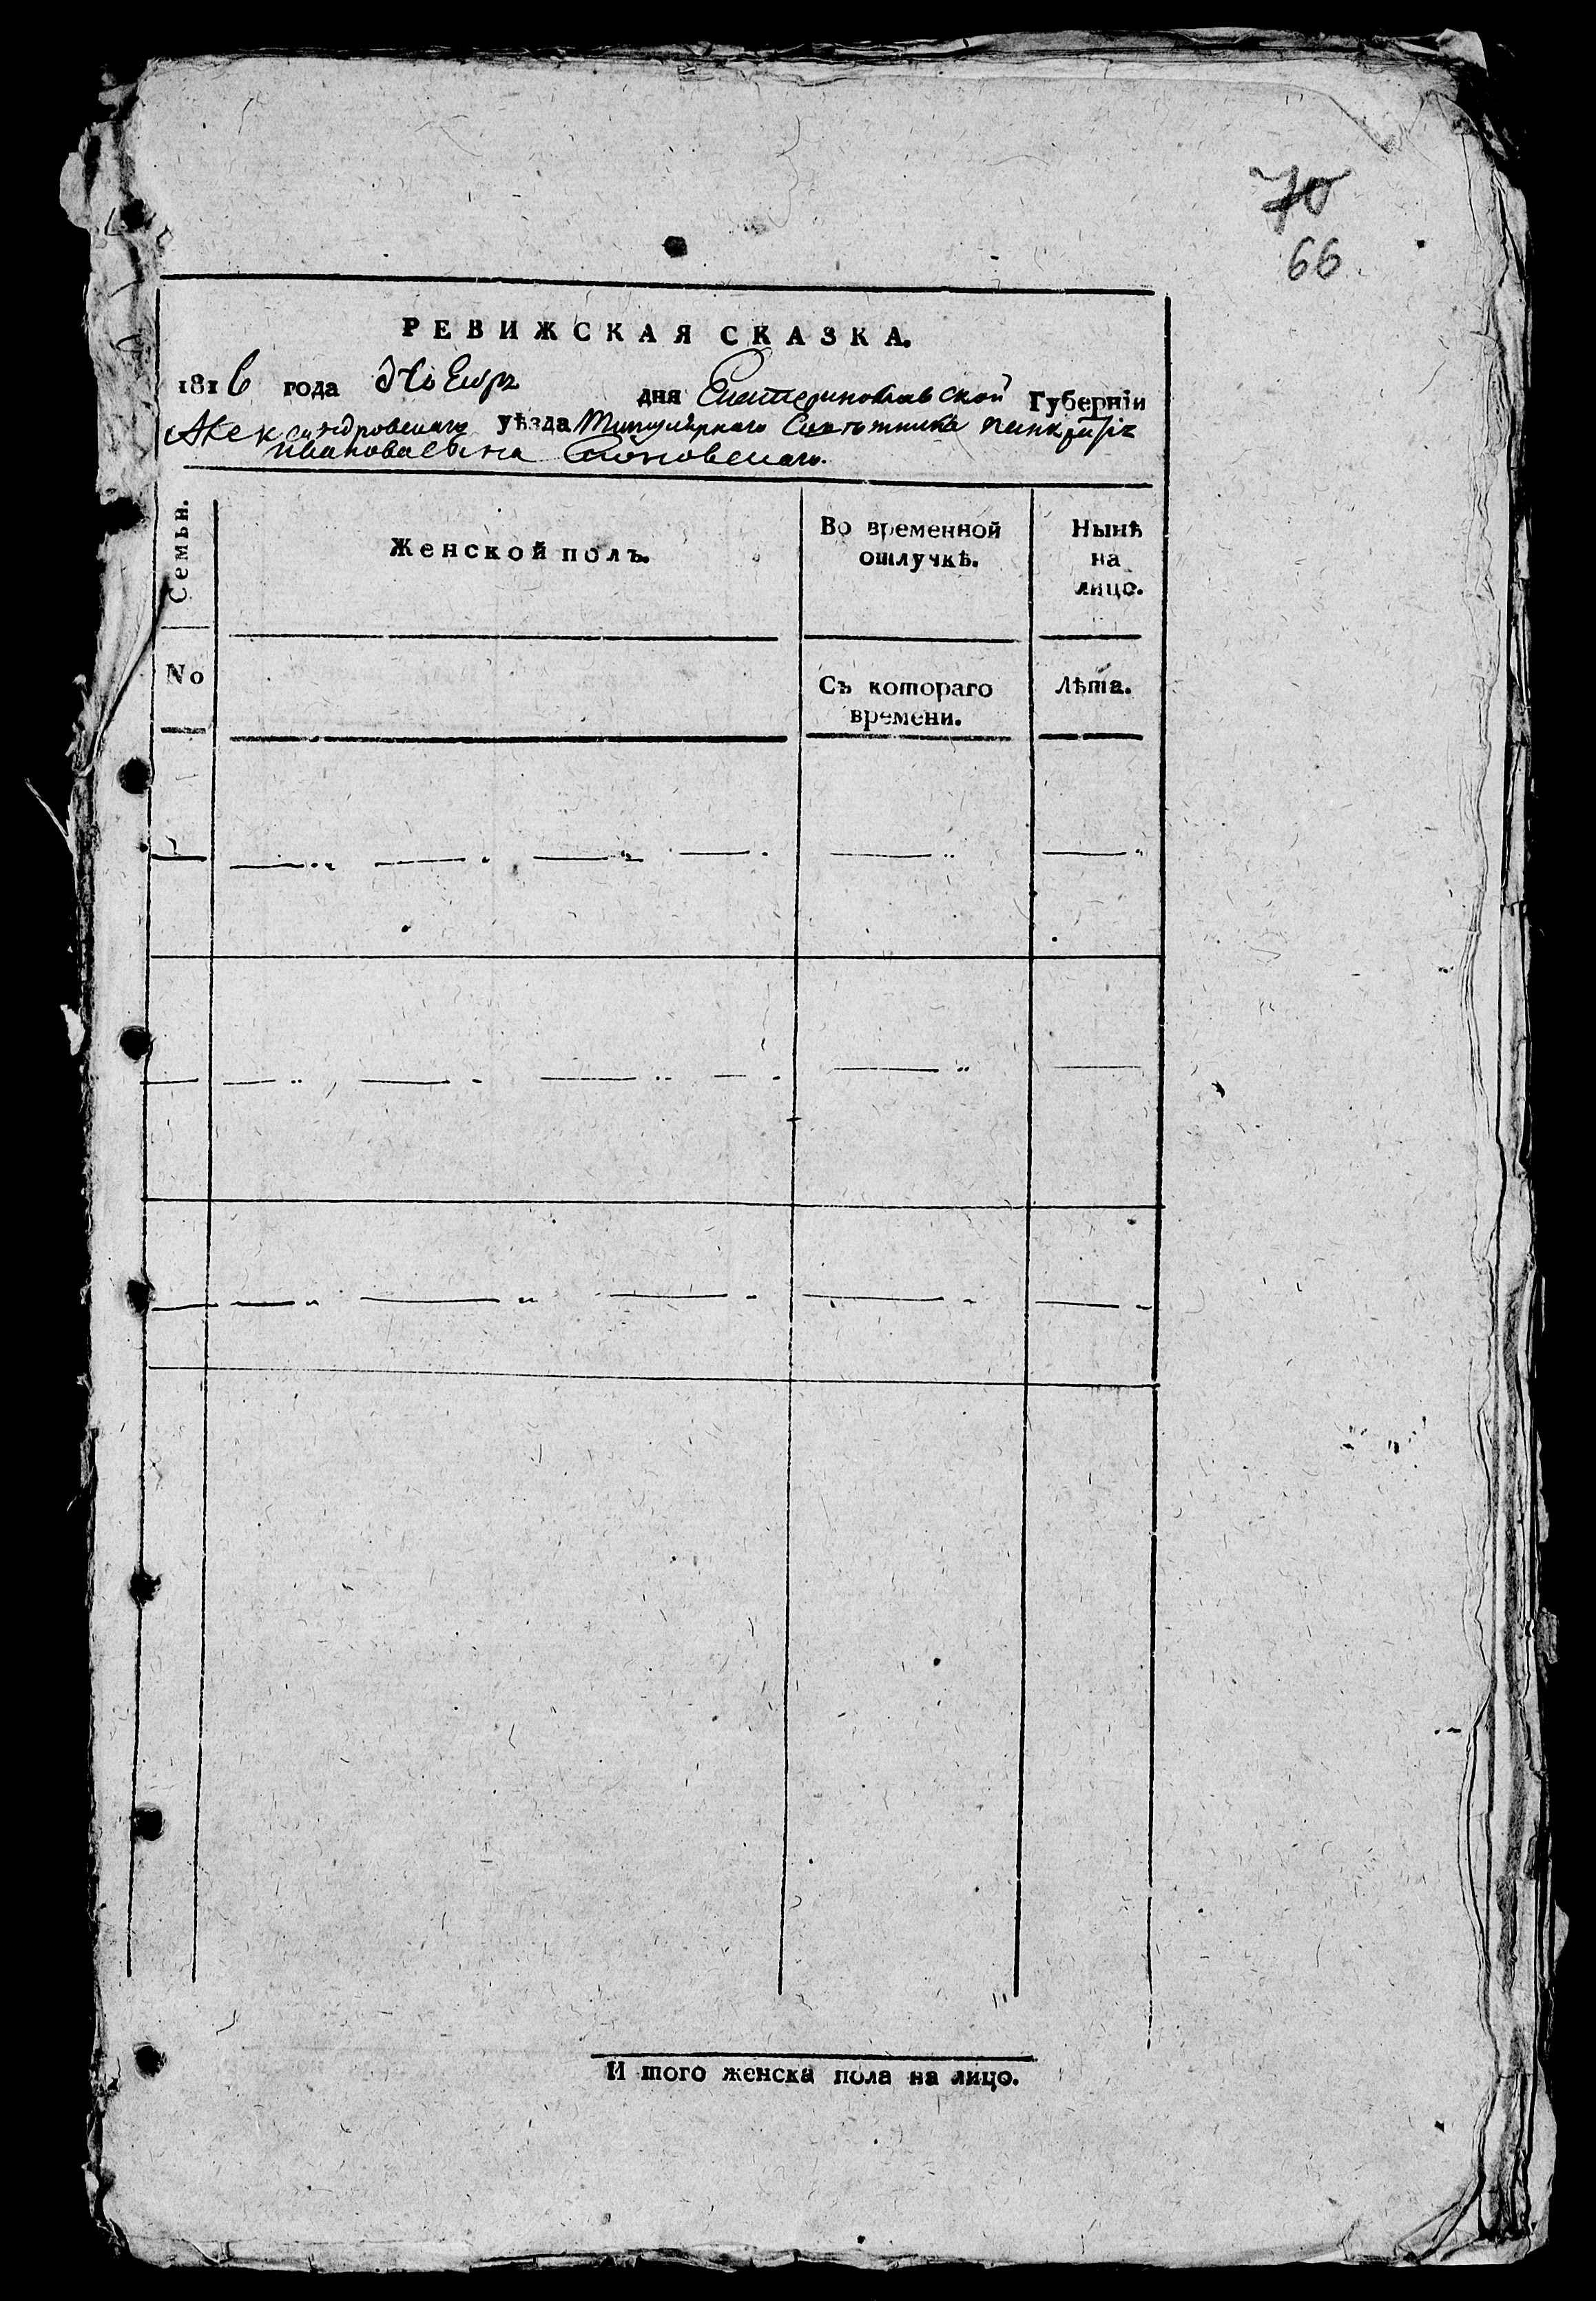 70
66
РЕВИЖСКАЯ СКАЗКА.
1816 года дня Екатеринославской Губерніи
Александровскаго уѣзда Титулярнаго Совѣтника
Иванова сына
Семьи.
Женской полъ.
Во временной отлучкѣ.
Нынѣ на лицо.
No
Съ котораго времени.
Лѣта.
И того женска пола на лицо.